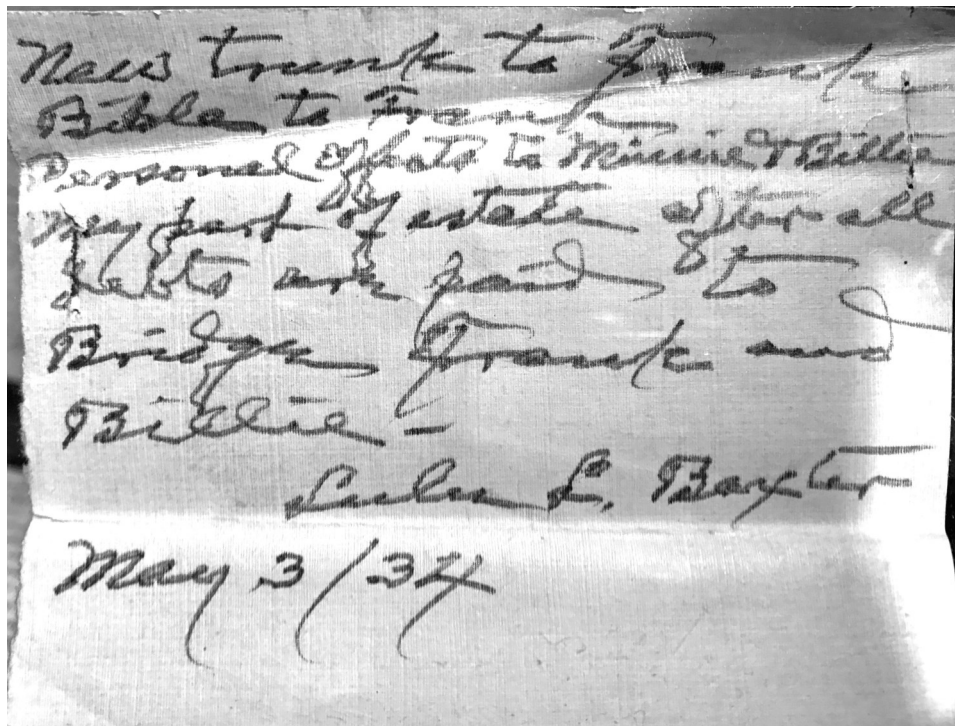 New trunk to Frank
Bible to Frank
Personal effects to Minnie & Billie
My part of estate after all
debts are paid to
Bridge Frank and
Billie -
Lulu L. Baxter
May 3/34